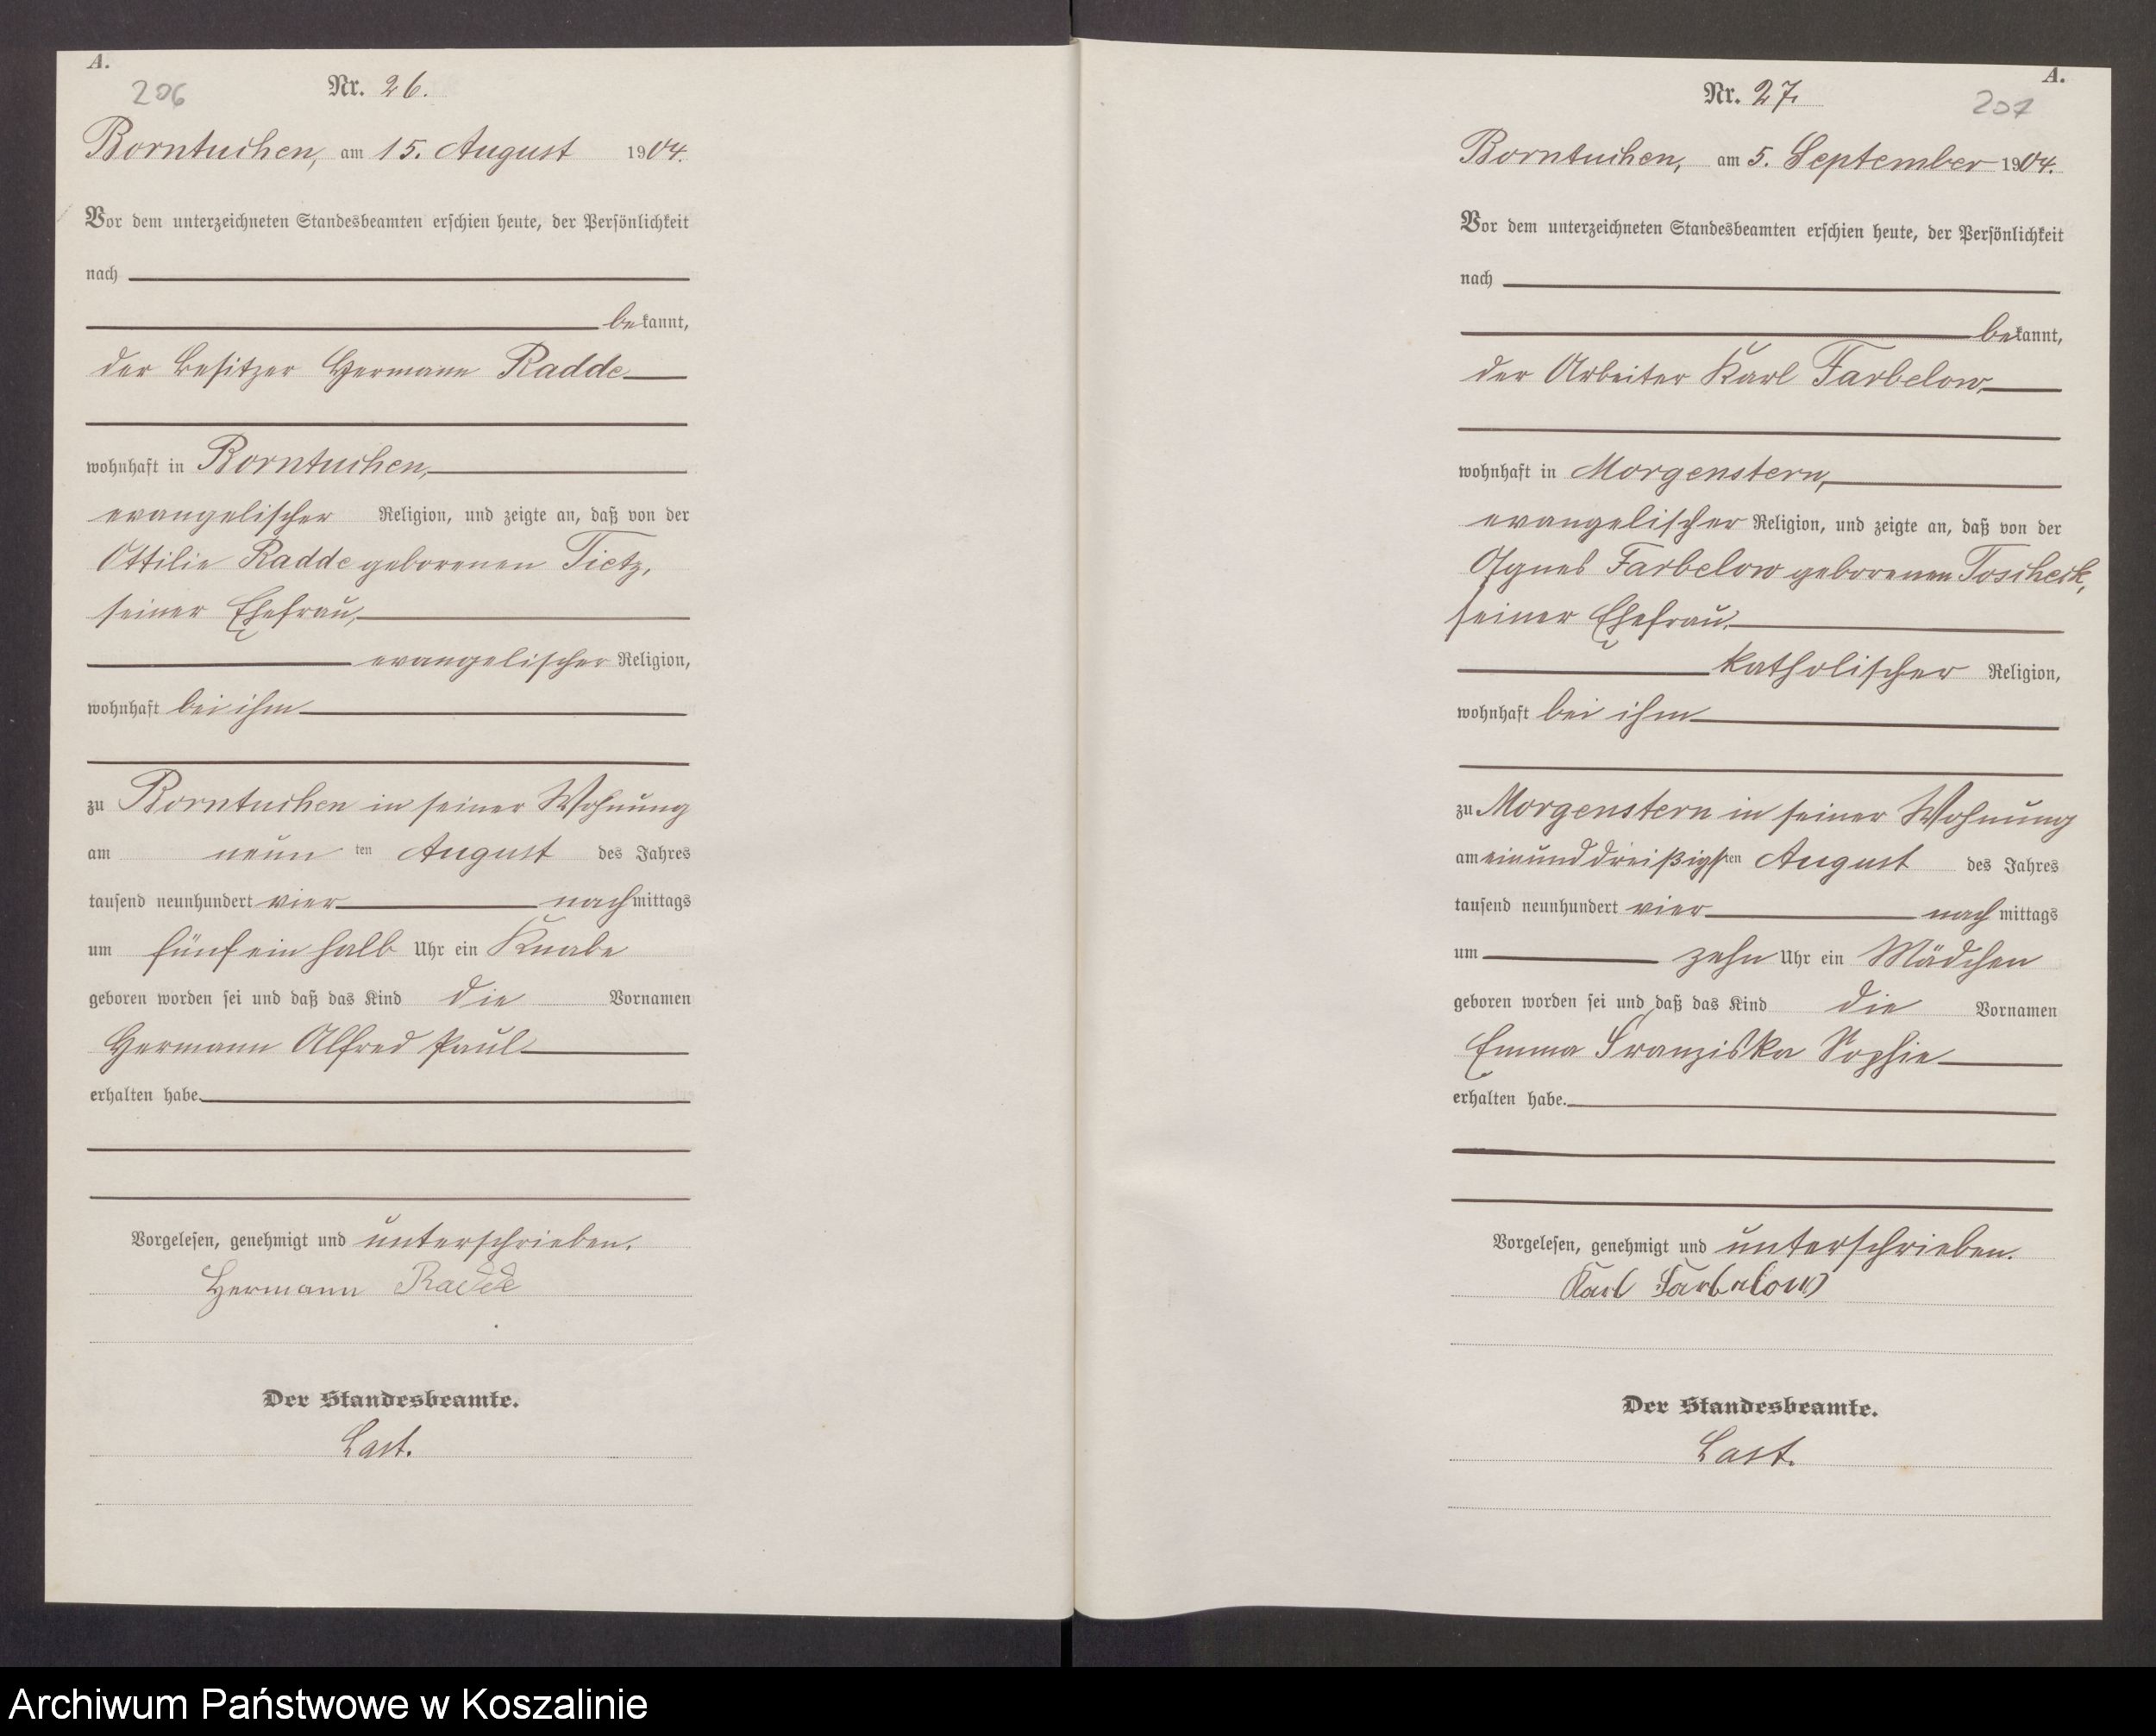 A.
206
Nr. 26.
Borntuchen, am 15. August 1904.
Vor dem unterzeichneten Standesbeamten erschien heute, der Persönlichkeit
nach
bekannt,
der Besitzer Hermann Radde
wohnhaft in Borntuchen,
evangelischer Religion, und zeigte an, daß von der
Ottilie Radde geborenen Tietz,
seiner Ehefrau,
evangelischer Religion,
wohnhaft bei ihm
zu Borntuchen in seiner Wohnung
am neunten August des Jahres
tausend neunhundert vier nachmittags
um fünf ein halb Uhr ein Knabe
geboren worden sei und daß das Kind die Vornamen
Hermann Alfred Paul
erhalten habe.
Vorgelesen, genehmigt und unterschrieben.
Hermann Radde
Der Standesbeamte.
Last.
A.
207
Nr. 27.
Borntuchen, am 5. September 1904.
Vor dem unterzeichneten Standesbeamten erschien heute, der Persönlichkeit
nach
bekannt,
der Arbeiter Karl Farbelow,
wohnhaft in Morgenstern,
evangelischer Religion, und zeigte an, daß von der
Agnes Farbelow geborenen Toscheck,
seiner Ehefrau,
katholischer Religion,
wohnhaft bei ihm
zu Morgenstern in seiner Wohnung
am einunddreißigsten August des Jahres
tausend neunhundert vier nachmittags
um zehn Uhr ein Mädchen
geboren worden sei und daß das Kind die Vornamen
Emma Franziska Sophie
erhalten habe.
Vorgelesen, genehmigt und unterschrieben.
Karl Farbelow
Der Standesbeamte.
Last.
Archiwum Państwowe w Koszalinie